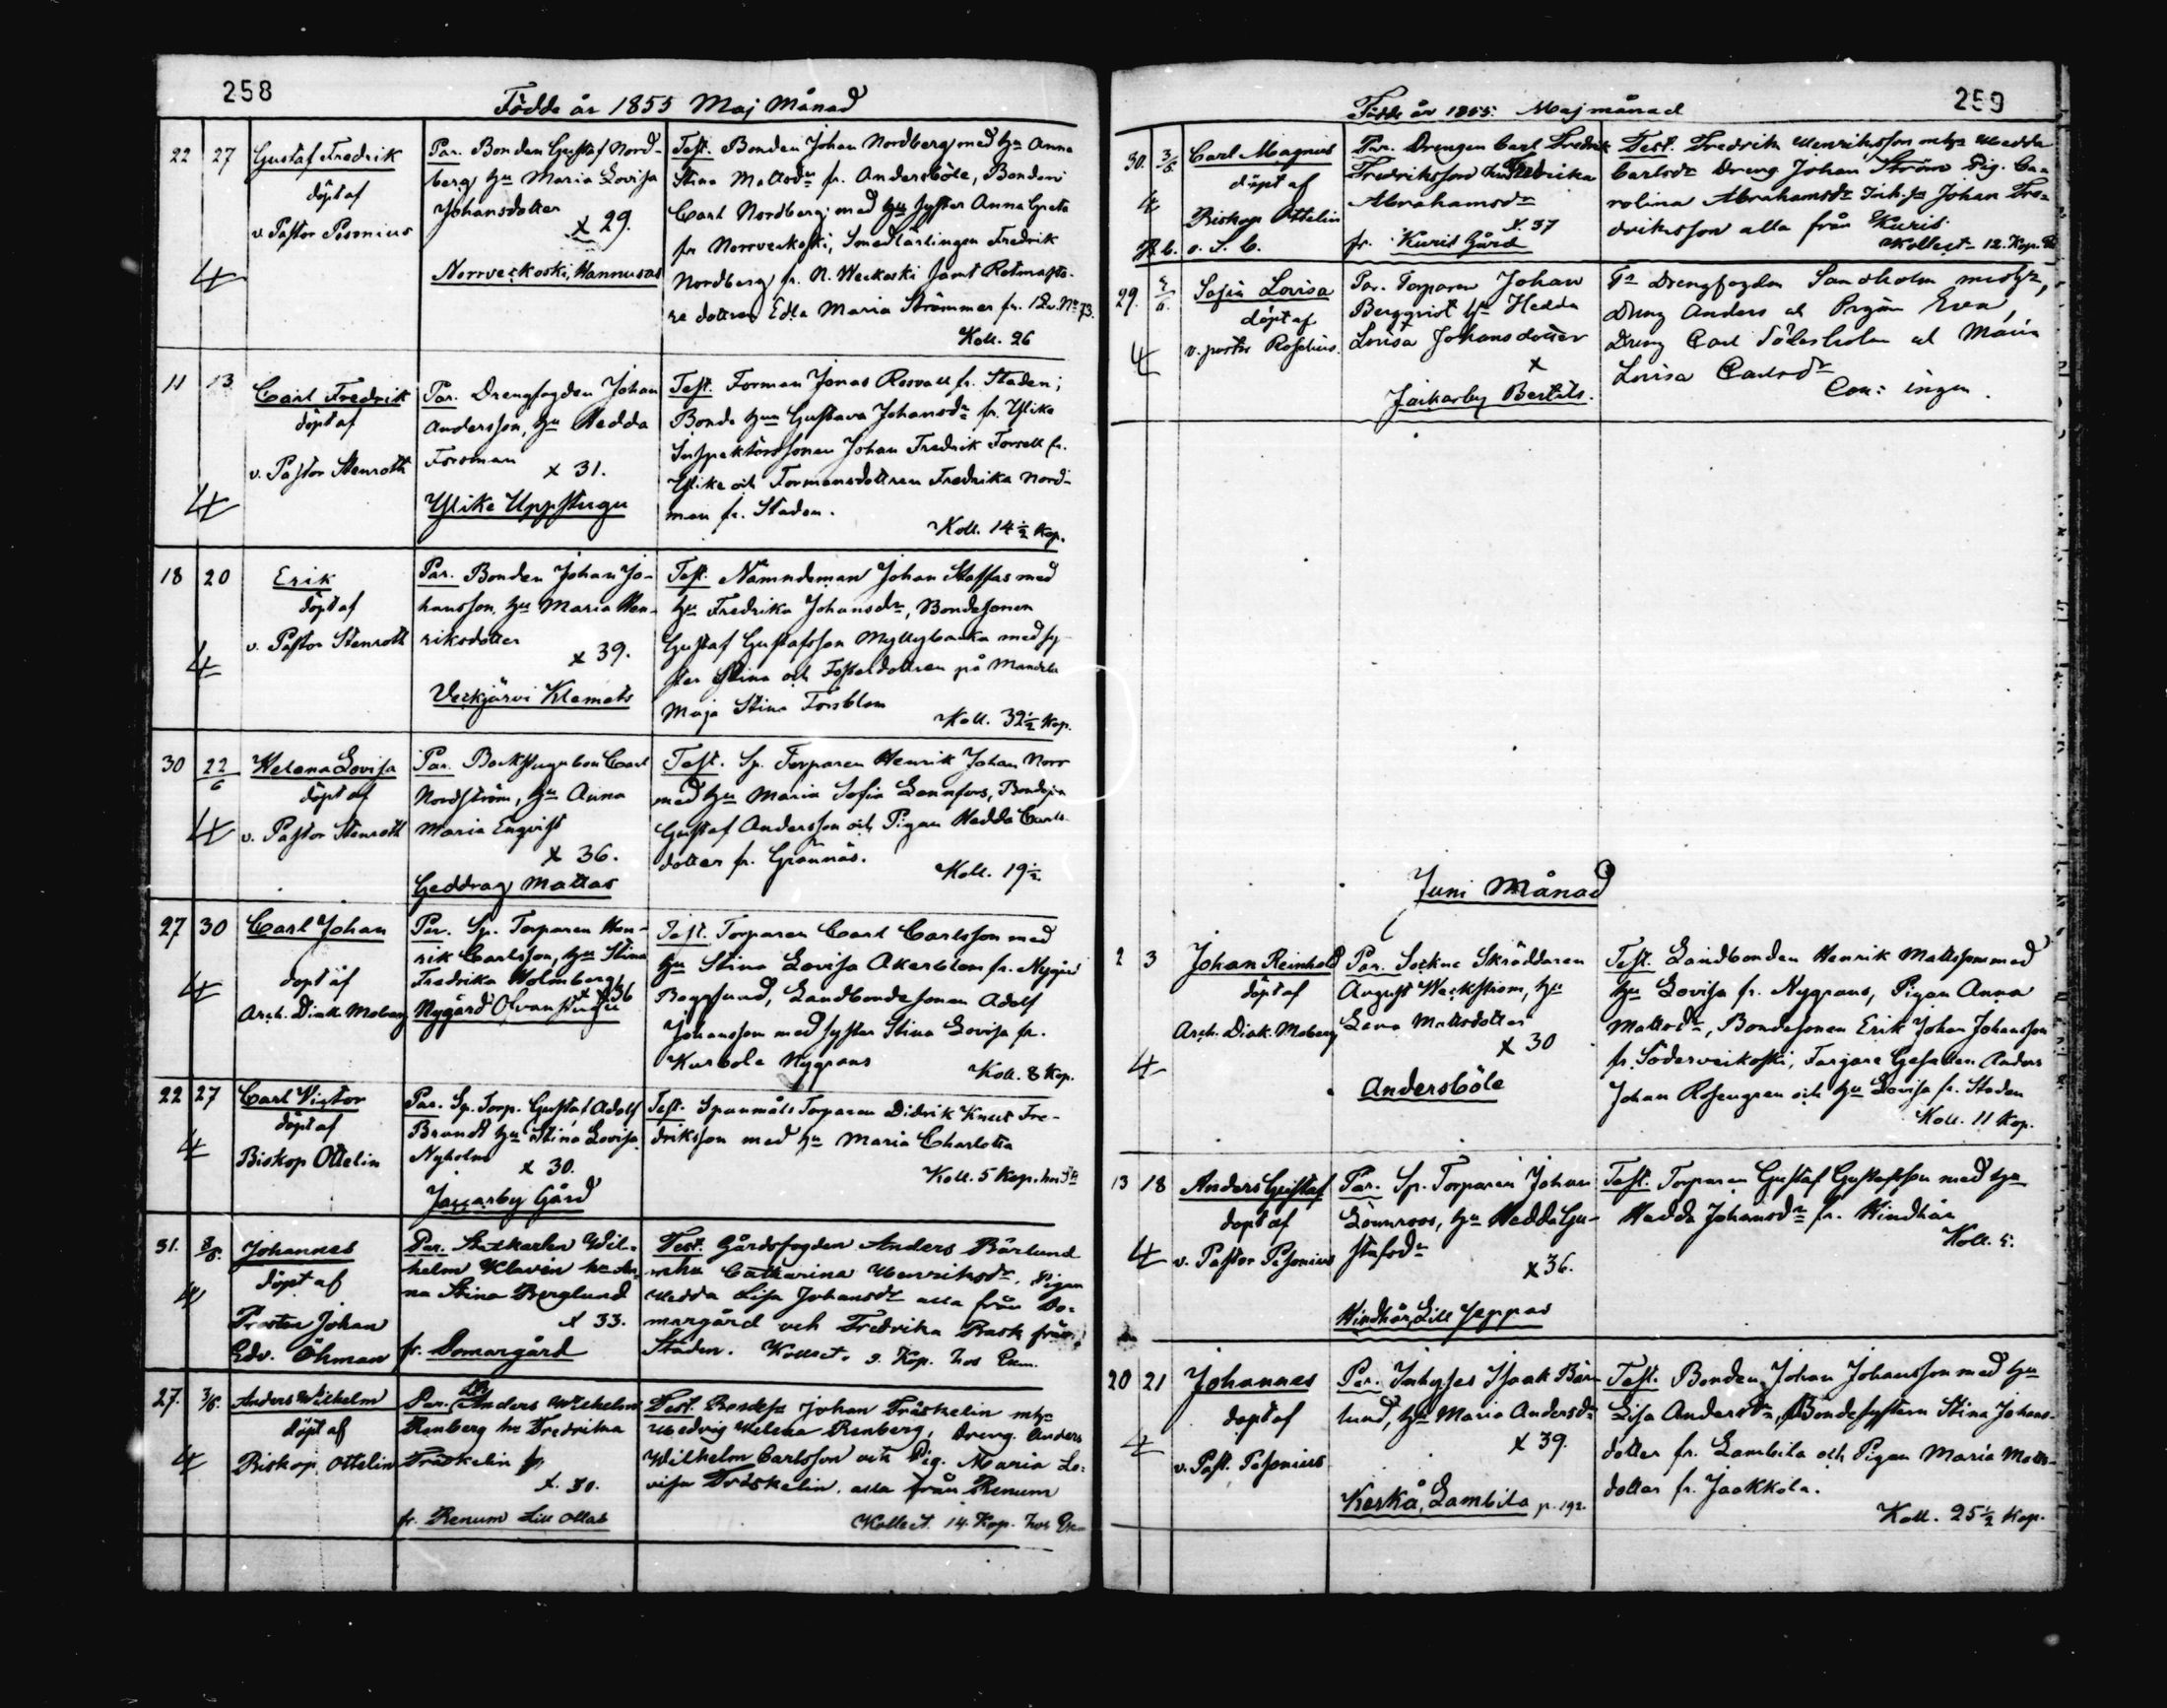 258
Födde år 1855 Maj Månad
22 27 Gustaf Fredrik
döpt af
v. Pastor Pesonius
4
Par. Bonden Gustaf Nord-
berg hu Maria Lovisa
Johansdotter
x 29.
Norrveckoski, Hannusas
Test. Bonden Johan Nordberg med hu Anna
Stina Mattsdr fr. Andersböle, Bonden
Carl Nordberg med hu syster Anna Greta
fr Norrveckoski, Smedlärlingen Fredrik
Nordberg fr. N. Weckoski samt Rotmästa-
re dottren Edla Maria Strömmer fr. 12 v. No 73.
Koll. 26
11 13 Carl Fredrik
döpt af
v. Pastor Stenroth
4
Par. Drengfogden Johan
Andersson, hu Hedda
Forsman
x 31.
Ylike Uppstugu
Test. Forman Jonas Rosvall fr. Staden;
Bonde hun Gustava Johansdr fr. Ylike
Inspektorssonen Johan Fredrik Forsell fr.
Ylike och Formansdottren Fredrika Nord-
man fr. Staden.
Koll. 14½ Kop.
18 20 Erik
döpt af
v. Pastor Stenroth
4
Par. Bonden Johan Jo-
hansson, hu Maria Hen-
riksdotter
x 39.
Veckjärvi Klemets
Test. Nämndeman Johan Staffas med
hu Fredrika Johansdr, Bondesonen
Gustaf Gustafsson Myllybacka med sy-
ster Stina och Fosterdottren på
Maja Stina Forsblom
Koll. 32½ Kop.
30 22/6 Helena Lovisa
döpt af
v. Pastor Stenroth
4
Par. Backstugubon Carl
Nordström, hu Anna
Maria Enqvist
x 36.
Geddrag Mattas
Test. Sp. Torparen Henrik Johan Norr
med hu Maria Sofia Lennfors, Bondesn
Gustaf Andersson och Pigan Hedda Carls-
dotter fr. Grännäs.
Koll. 19½
27 30 Carl Johan
döpt af
Arch. Diak Moberg
4
Par. Sp. Torparen Hen-
rik Carlsson, hu Stina
Fredrika Holmberg
x 36
Nygård Ofvanstugu
Test. Torparen Carl Carlsson med
hu Stina Lovisa Akerblom fr. Nygård
Boggsund, Landbondesonen Adolf
Johansson med syster Stina Lovisa fr.
Kurböle Nygrans
Koll. 8 Kop.
22 27 Carl Victor
döpt af
Biskop Ottelin
4
Par. Sp. Torp. Gustaf Adolf
Brandt hu Stina Lovisa
Nyholm
x 30.
Jackarby Gård
Test. Spanmåls Torparen Didrik Knut Fre-
driksson med hu Maria Charlotta
Koll. 5 Kop.
31. 3/6. Johannes
döpt af
Prosten Johan
Edv. Öhman
4
Par. Statkarlen Wil-
helm Klavin hu An-
na Stina Berglund
x 33.
fr. Domargård
Test. Gårdsfogden Anders Bärlund
mhu Catharina Henriksdr. Pigan
Hedda Lisa Johansdr alla från Do-
margård och Fredrika Rask från
Staden. Kollect. 9. Kop. hos Ekm.
27. 3/6. Anders Wilhelm
döpt af
Biskop Ottelin
4
Par. Anders Wilhelm
Renberg hu Fredrika
Träskelin
x. 30.
fr. Renum Lill Ollas
Test. Bondesn Johan Träskelin mhu
Hedvig Helena Renberg, Dreng. Anders
Wilhelm Carlsson och Pig. Maria Lo-
visa Träskelin. alla från Renum
Kollect. 14. Kop. hos Ek
259
Födde år 1855. Maj månad
30. 3/6. Carl Magnus
döpt af
Biskop Ottelin
4
o. S. C.
Par. Drengen Carl Fredrik
Fredriksson hu Fredrika
Abrahamsdr
x. 37
fr. Kuris Gård
Test. Fredrik Henriksson mhu Hedda
Carlsdr Dreng Johan Ström Pig. Ca-
rolina Abrahamsdr Inh. sn Johan Fre-
driksson alla från Kuris.
Kollect. 12. Kop.
29. Sofia Lovisa
döpt af
v. pastor Roselius.
4
Par. Torparen Johan
Bergqvist hu Hedda
Lovisa Johansdotter
x
Jackarby Bertils.
Ts Drengfogden Sandholm med hu,
Dreng Anders och Pigan Eva,
Dreng Carl Söderholm och Maria
Lovisa Carlsdr
Coll: ingen.
Juni Månad
2 3 Johan Reinhold
döpt af
Arch. Diak. Moberg
4
Par. Sockne Skräddaren
August Weckström, hu
Lena Mattsdotter
x 30
Andersböle
Test. Landbonden Henrik Mattsson med
hu Lovisa fr. Nygrans, Pigan Anna
Mattsdr, Bondesonen Erik Johan Johansson
fr. Söderveikoski, Fargare Gesellen Anders
Johan Rosengren och hu Lovisa fr. Staden
Koll. 11 Kop.
13 18 Anders Gustaf
döpt af
v. Pastor Pesonius
4
Par. Sp. Torparen Johan
Lönnroos, hu Hedda Gu-
stafsdr
x 36.
Hindhår, Lill Jeppas
Test. Torparen Gustaf Gustafsson med hu
Hedda Johansdr fr. Hindhår
Koll. 5.
20 21 Johannes
döpt af
v. Past. Pesonius
4
Par. Inhyses Isaak Bär-
lund, hu Maria Andersdr
x 39.
Kerkå, Lambila p. 192.
Test. Bonden Johan Johansson med hu
Lisa Andersdr, Bondesystern Stina Johans-
dotter fr. Lambila och Pigan Maria Matts-
dotter fr. Jaakkola.
Koll. 25½ Kop.